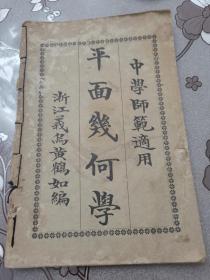 中學師範適用
平面幾何學
浙江義烏黃鶴如編